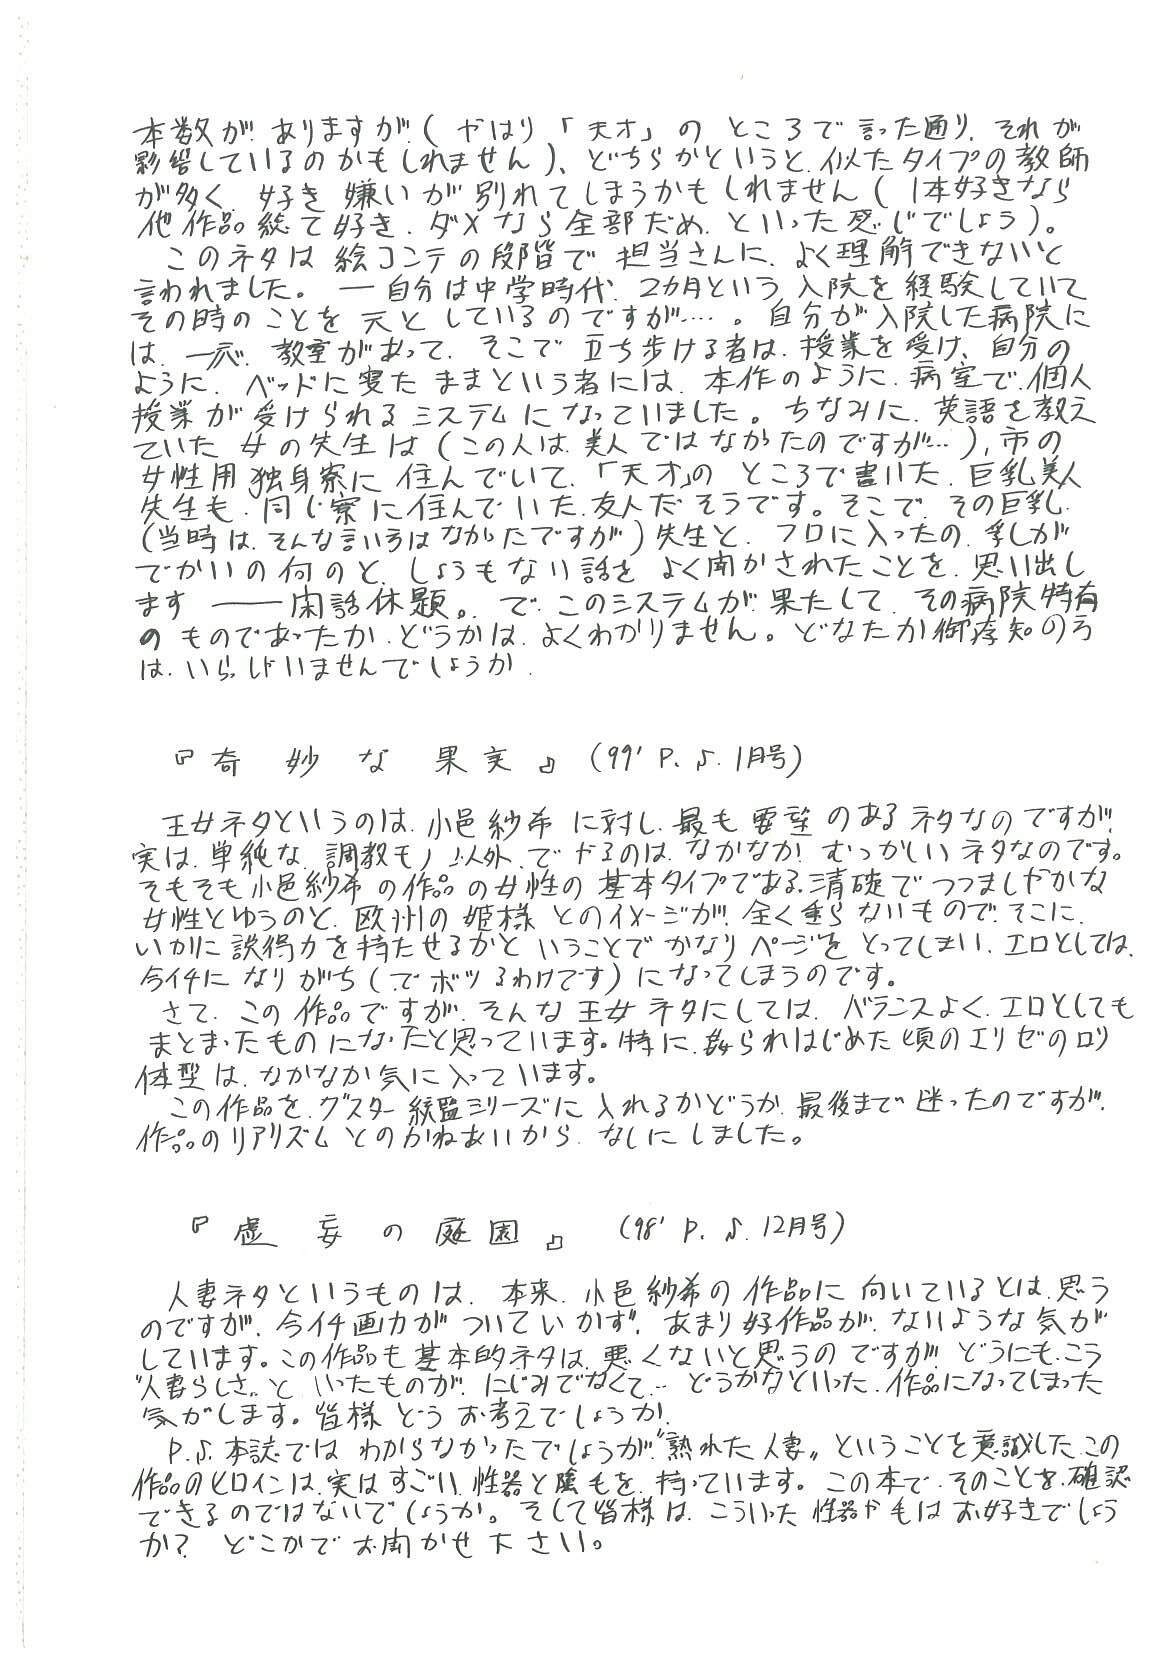 本数が、ありますが(やはり「天才」のところで言った通り、それが
影響しているのかもしれません)、どちらかというと、似たタイプの教師
が多く、好き嫌いが別れてしまうかもしれません(1本好きなら
他作品総て好き、ダメなら全部だめ、といった感じでしょう)。
このネタは絵コンテの段階で担当さんに、よく理解できないと
言われました。―自分は中学時代、2カ月という入院を経験していて
その時のことを元としているのですが…。自分が入院した病院に
は、一応、教室があって、そこで立ち歩ける者は、授業を受け、自分の
ように、ベッドに寝たままという者には、本作のように、病室で、個人
授業が受けられるシステムになっていました。ちなみに、英語を教え
ていた女の先生は(この人は、美人ではなかったのですが…)、市の
女性用独身寮に住んでいて、「天才」のところで書いた、巨乳美人
先生も、同じ寮に住んでいた、友人だそうです。そこで、その巨乳
(当時は、そんな言いろはなかったですが)先生と、フロに入ったの、乳が
でかいの何のと、しょうもない話をよく聞かされたことを、思い出し
ます――閑話休題。で、このシステムが、果たして、その病院特有
のものであったか、どうかは、よくわかりません。どなたか御存知の方
は、いらっしゃいませんでしょうか。
『奇妙な果実』(99' P.S. 1月号)
王女ネタというのは、小邑紗希に対し、最も要望のあるネタなのですが、
実は、単純な、調教モノ以外、でやるのは、なかなか、むつかしいネタなのです。
そもそも小邑紗希の作品の女性の基本タイプである、清楚でつつましやかな
女性とゆうのと、欧州の姫様とのイメージが、全く重らないもので、そこに、
いかに説得力を持たせるかということでかなりページをとってしまい、エロとしては、
今イチになりがち(でボツるわけです)になってしまうのです。
さて、この作品ですが、そんな王女ネタにしては、バランスよく、エロとしても
まとまったものになったと思っています。特に、姦られはじめた頃のエリゼのロリ
体型は、なかなか気に入っています。
この作品を、グスター総監シリーズに入れるかどうか、最後まで迷ったのですが、
作品のリアリズムとのかねあいから、なしにしました。
『虚妄の庭園』(98' P.S. 12月号)
人妻ネタというものは、本来、小邑紗希の作品に向いているとは、思う
のですが、今イチ画力がついていかず、あまり好作品が、ないような気が
しています。この作品も基本的ネタは、悪くないと思うのですが、どうにも、こう
"人妻らしさ"といったものが、にじみでなくて…どうかなといった、作品になってしまった
気がします。皆様どうお考えでしょうか。
P.S.本誌ではわからなかったでしょうが、"熟れた人妻"ということを意識した、この
作品のヒロインは、実はすごい、性器と陰毛を、持っています。この本で、そのことを、確認
できるのではないでしょうか。そして皆様は、こういった性器や毛はお好きでしょう
か？どこかでお聞かせ下さい。